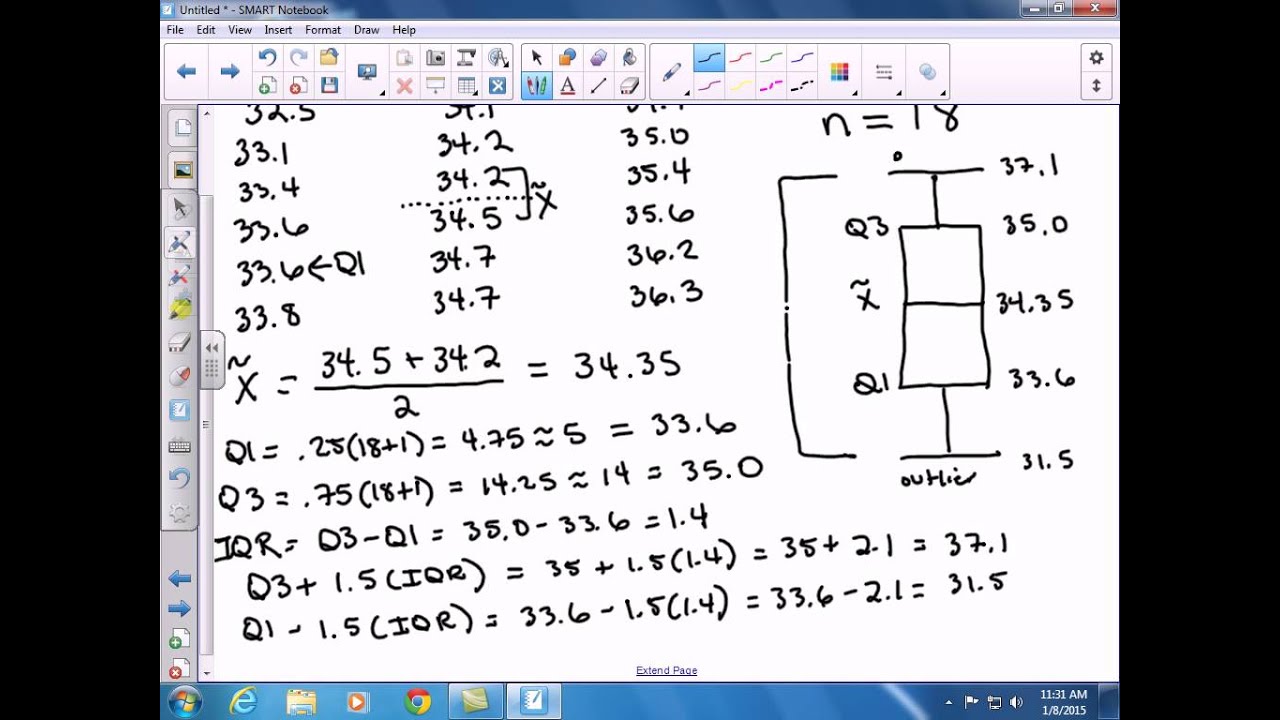 Untitled * - SMART Notebook
File Edit View Insert Format Draw Help
32.5 34.1
33.1 34.2 35.0
33.4 34.2 35.4
x̃
33.6 34.5 35.6
33.6 ← Q1 34.7 36.2
33.8 34.7 36.3
x̃ = 34.5 + 34.2 / 2 = 34.35
Q1 = .25(18+1) = 4.75 ≈ 5 = 33.6
Q3 = .75(18+1) = 14.25 ≈ 14 = 35.0
IQR = Q3 - Q1 = 35.0 - 33.6 = 1.4
Q3 + 1.5(IQR) = 35 + 1.5(1.4) = 35 + 2.1 = 37.1
Q1 - 1.5(IQR) = 33.6 - 1.5(1.4) = 33.6 - 2.1 = 31.5
n = 18
37.1
Q3 35.0
x̃ 34.35
Q1 33.6
31.5
outlier
Extend Page
11:31 AM
1/8/2015